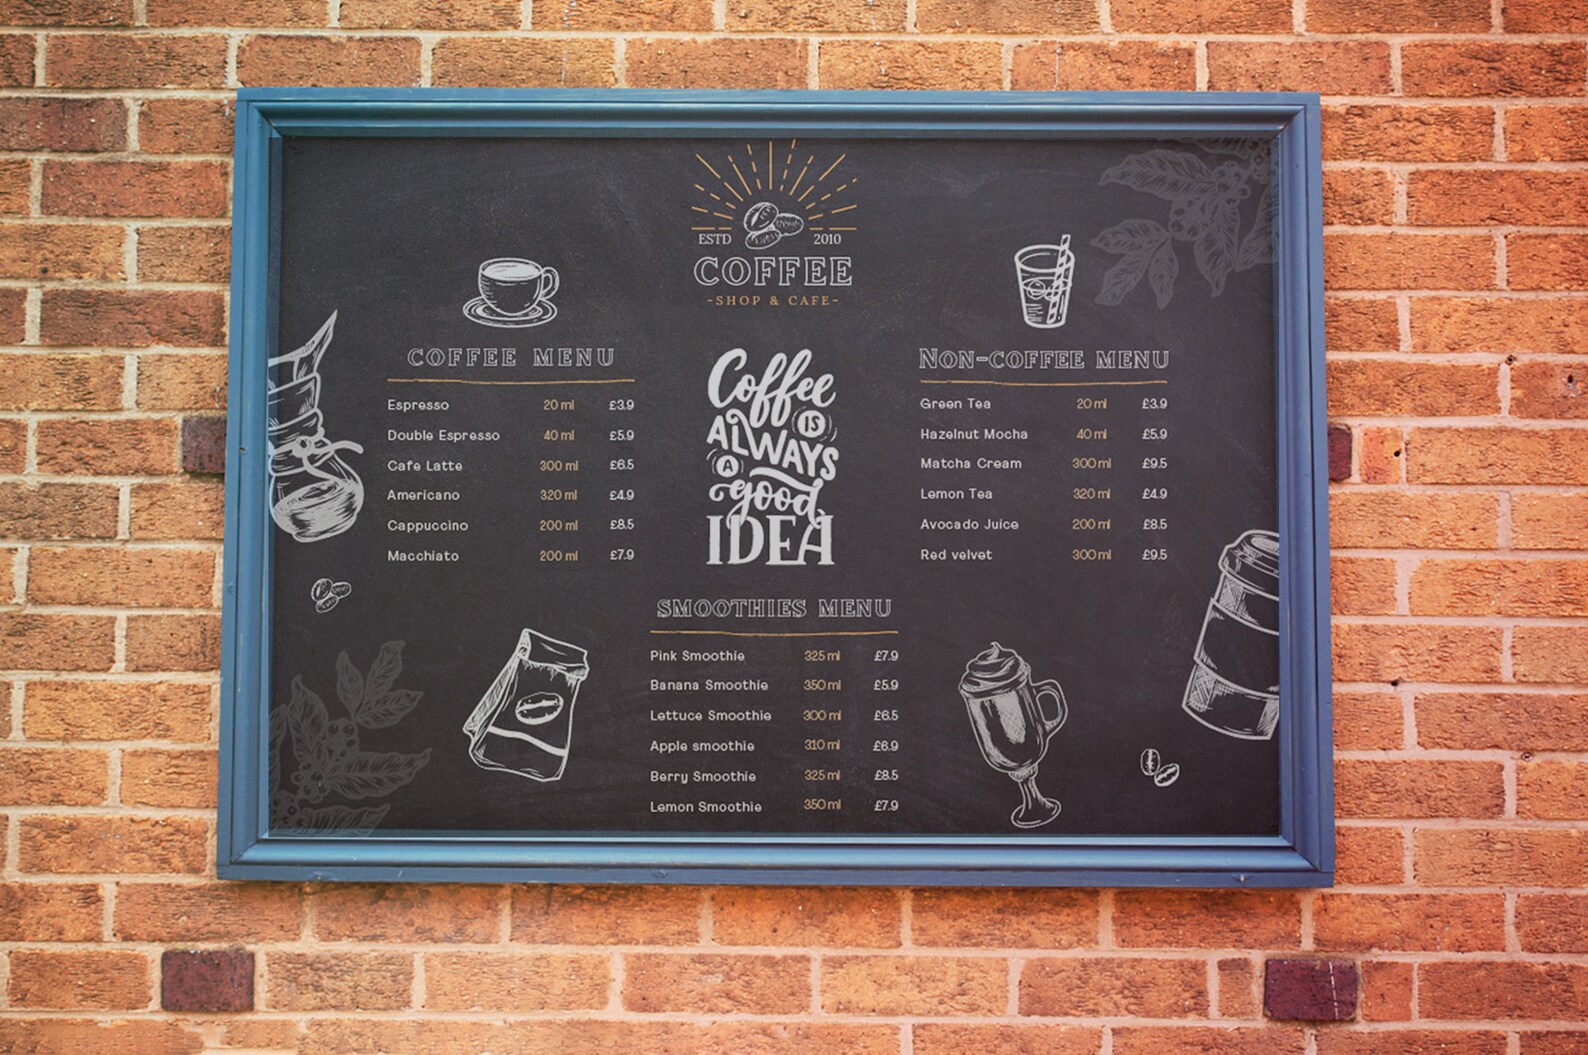 ESTD 2010
COFFEE
-SHOP & CAFE-
COFFEE MENU
Espresso 20 ml £3.9
Double Espresso 40 ml £5.9
Cafe Latte 300 ml £6.5
Americano 320 ml £4.9
Cappuccino 200 ml £8.5
Macchiato 200 ml £7.9
Coffee
IS
ALWAYS
A
good
IDEA
NON-COFFEE MENU
Green Tea 20 ml £3.9
Hazelnut Mocha 40 ml £5.9
Matcha Cream 300 ml £9.5
Lemon Tea 320 ml £4.9
Avocado Juice 200 ml £8.5
Red velvet 300 ml £9.5
SMOOTHIES MENU
Pink Smoothie 325 ml £7.9
Banana Smoothie 350 ml £5.9
Lettuce Smoothie 300 ml £6.5
Apple smoothie 310 ml £6.9
Berry Smoothie 325 ml £8.5
Lemon Smoothie 350 ml £7.9